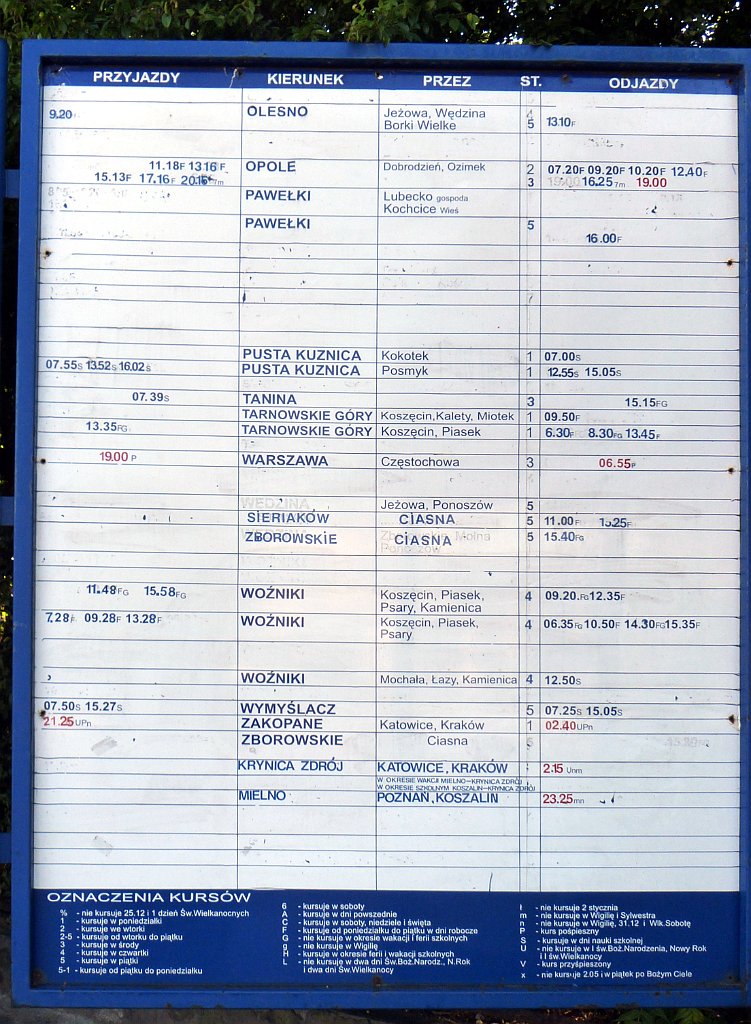 PRZYJAZDY KIERUNEK PRZEZ ST. ODJAZDY
9.20 OLESNO Jeżowa, Wędzina
Borki Wielke 5 13.10F
11.18F 13.16F OPOLE Dobrodzień, Ozimek 2 07.20F 09.20F 10.20F 12.40F
15.13F 17.16F 3 16.25 7m 19.00
PAWEŁKI Lubecko gospoda
Kochcice Wieś
PAWEŁKI 5
16.00F
PUSTA KUZNICA Kokotek 1 07.00S
07.55S 13.52S 16.02S PUSTA KUZNICA Posmyk 1 12.55S 15.05S
07.39S TANINA 3 15.15FG
TARNOWSKIE GÓRY Koszęcin,Kalety, Miotek 1 09.50F
13.35FG TARNOWSKIE GÓRY Koszęcin, Piasek 1 6.30F 8.30FG 13.45F
19.00 P WARSZAWA Częstochowa 3 06.55P
WĘDZINA Jeżowa, Ponoszów 5
SIERIAKÓW CIASNA 5 11.00F 15.25F
ZBOROWSKIE CIASNA 5 15.40FG
11.48FG 15.58FG WOŹNIKI Koszęcin, Piasek,
Psary, Kamienica 4 09.20.FG12.35F
7.28F 09.28F 13.28F WOŹNIKI Koszęcin, Piasek,
Psary 4 06.35FG 10.50F 14.30FG15.35F
WOŹNIKI Mochała, Łazy, Kamienica 4 12.50S
07.50S 15.27S WYMYŚLACZ 5 07.25S 15.05S
21.25UPn ZAKOPANE Katowice, Kraków 1 02.40UPn
ZBOROWSKIE Ciasna
KRYNICA ZDRÓJ KATOWICE, KRAKÓW 2.15 Unm
W OKRESIE WAKCJI MIELNO–KRYNICA ZDRÓJ
W OKRESIE SZKOLNYM KOSZALIN–KRYNICA ZDRÓJ
MIELNO POZNAŃ,KOSZALIN 23.25mn
OZNACZENIA KURSÓW
% - nie kursuje 25.12 i 1 dzień Św.Wielkanocnych
1 - kursuje w poniedziałki
2 - kursuje we wtorki
2-5 - kursuje od wtorku do piątku
3 - kursuje w środy
4 - kursuje w czwartki
5 - kursuje w piątki
5-1 - kursuje od piątku do poniedziałku
6 - kursuje w soboty
A - kursuje w dni powszednie
C - kursuje w soboty, niedziele i święta
F - kursuje od poniedziałku do piątku w dni robocze
G - nie kursuje w okresie wakacji i ferii szkolnych
g - nie kursuje w Wigilię
H - kursuje w okresie ferii i wakacji szkolnych
L - nie kursuje w dwa dni Św.Boż.Narodz., N.Rok
i dwa dni Św.Wielkanocy
ł - nie kursuje 2 stycznia
m - nie kursuje w Wigilię i Sylwestra
n - nie kursuje w Wigilię, 31.12 i Wlk.Sobotę
P - kurs pośpieszny
S - kursuje w dni nauki szkolnej
U - nie kursuje w I św.Boż.Narodzenia, Nowy Rok
i I św.Wielkanocy
V - kurs przyśpieszony
x - nie kursuje 2.05 i w piątek po Bożym Ciele